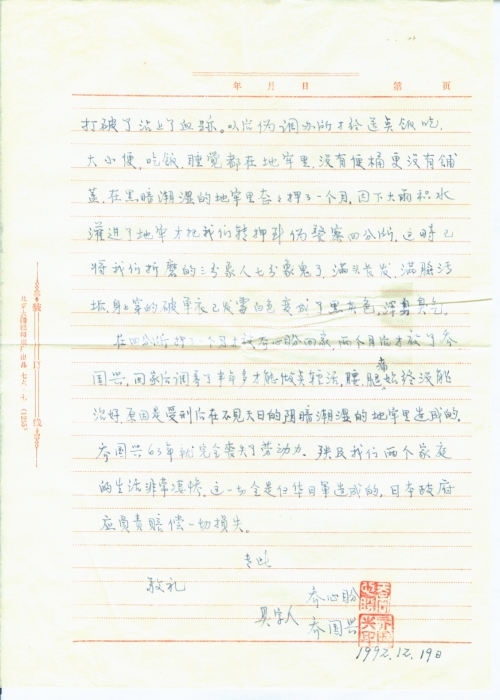 年 月 日 第 页
打破了沾上了血跡。以后伪调办所才给送点饭吃,
大小便,吃饭,睡觉都在地牢里,没有便桶更没有铺
盖,在黑暗潮湿的地牢里存押了一个月,因下大雨积水
灌进了地牢才把我们转押到伪警察四分所,这时已
将我们折磨的三分象人七分象鬼了,满头长发,满脸污
垢,身上穿的破单衣已发霉白色变成了黑灰色,浑身臭气。
在四分所押了一个月才放齐心盼回家,两个月后才放了齐
国兴,回家后调养了半年多才能做点轻活,腰,腿痛始终没能
治好,原因是受刑后在不见天日的阴暗潮湿的地牢里造成的。
齐国兴63年就完全丧失了劳动力。殃及我们两个家庭
的生活非常凄惨,这一切全是侵华日军造成的,日本政府
应负责赔偿一切损失。
专此
敬礼
齐心盼
具字人
齐国兴
1992.12.19日
装
订
线